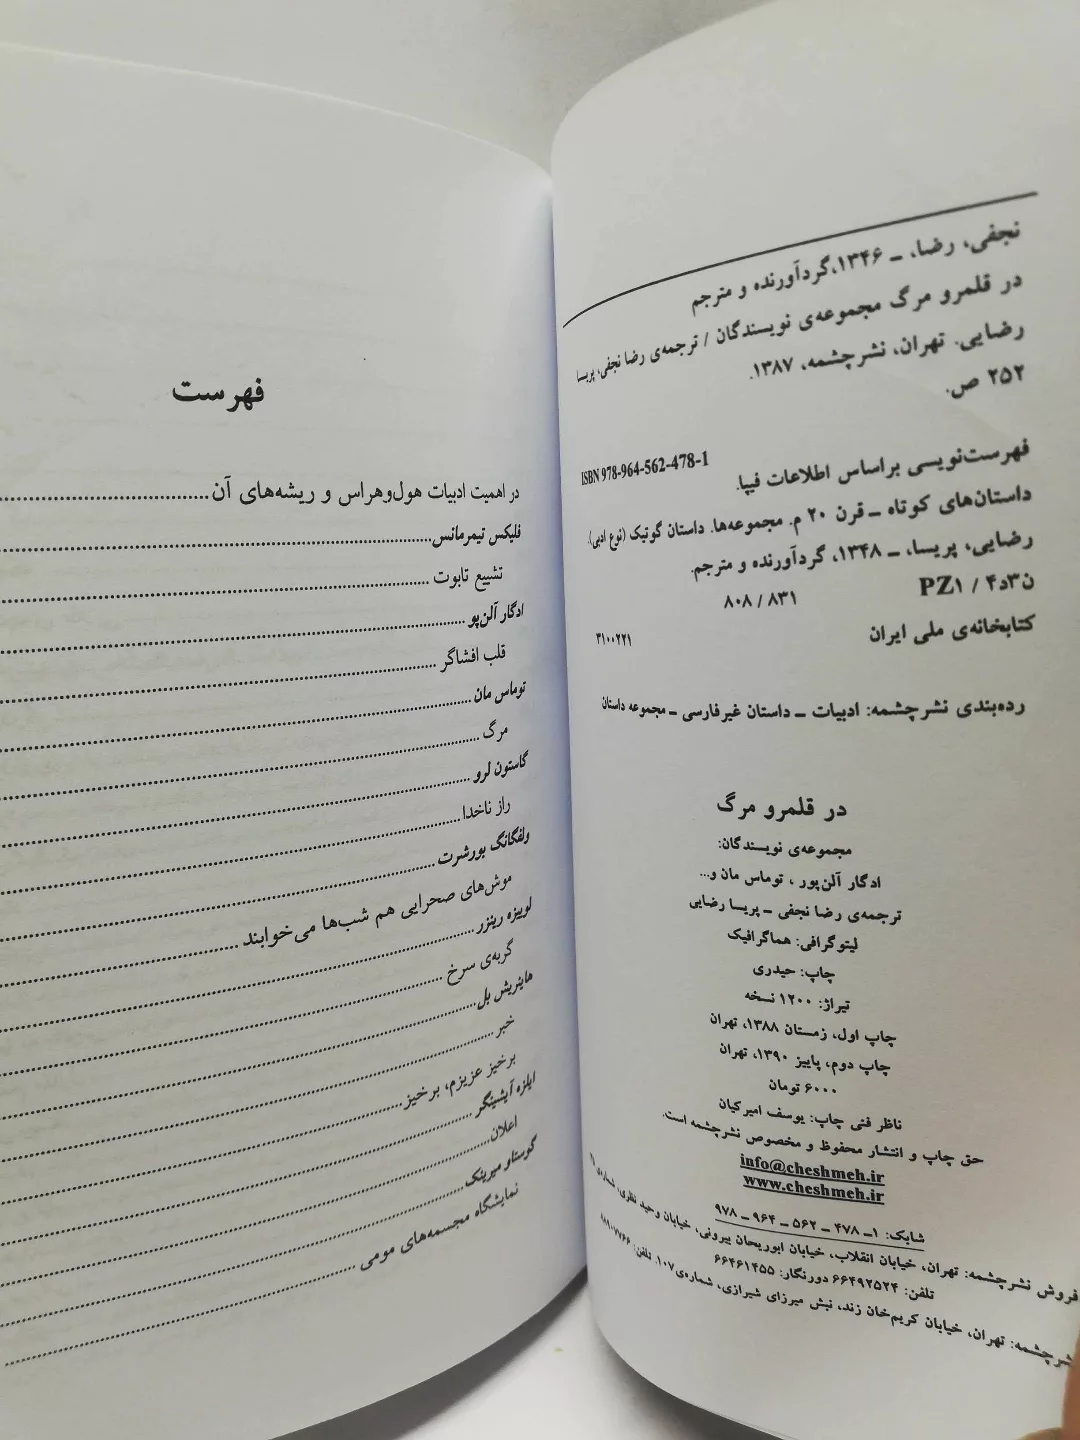 نجفی، رضا، ـ ۱۳۴۶، گردآورنده و مترجم
در قلمرو مرگ مجموعه‌ی نویسندگان / ترجمه‌ی رضا نجفی، پریسا
رضایی. تهران، نشرچشمه، ۱۳۸۷.
۲۵۲ ص.
ISBN 978-964-562-478-1
فهرست‌نویسی براساس اطلاعات فیپا.
داستان‌های کوتاه ـ قرن ۲۰ م. مجموعه‌ها. داستان گوتیک (نوع ادبی).
رضایی، پریسا، ـ ۱۳۴۸، گردآورنده و مترجم.
PZ۱ / ن۳د۴ ۸۰۸ / ۸۳۱
کتابخانه‌ی ملی ایران ۳۱۰۰۲۲۱
رده‌بندی نشرچشمه: ادبیات ـ داستان غیرفارسی ـ مجموعه داستان
در قلمرو مرگ
مجموعه‌ی نویسندگان:
ادگار آلن‌پور ، توماس مان و...
ترجمه‌ی رضا نجفی ـ پریسا رضایی
لیتوگرافی: هماگرافیک
چاپ: حیدری
تیراژ: ۱۲۰۰ نسخه
چاپ اول، زمستان ۱۳۸۸، تهران
چاپ دوم، پاییز ۱۳۹۰، تهران
۶۰۰۰ تومان
ناظر فنی چاپ: یوسف امیرکیان
حق چاپ و انتشار محفوظ و مخصوص نشرچشمه است.
info@cheshmeh.ir
www.cheshmeh.ir
شابک: ۱ـ ۴۷۸ ـ ۵۶۲ ـ ۹۶۴ ـ ۹۷۸
فروش نشرچشمه: تهران، خیابان انقلاب، خیابان ابوریحان بیرونی، خیابان وحید نظری، شماره‌ی
تلفن: ۶۶۴۹۲۵۲۴ دورنگار: ۶۶۴۶۱۴۵۵
نشرچشمه: تهران، خیابان کریم‌خان زند، نبش میرزای شیرازی، شماره‌ی ۱۰۷. تلفن: ۸۸۹۰۷۷۶۶
فهرست
در اهمیت ادبیات هول‌وهراس و ریشه‌های آن
فلیکس تیمرمانس
تشییع تابوت
ادگار آلن‌پو
قلب افشاگر
توماس مان
مرگ
گاستون لرو
راز ناخدا
ولفگانگ بورشرت
موش‌های صحرایی هم شب‌ها می‌خوابند
لوییزه رینزر
گربه‌ی سرخ
هاینریش بل
خبر
برخیز عزیزم، برخیز
ایلزه آیشینگر
اعلان
گوستاو میرینک
نمایشگاه مجسمه‌های مومی